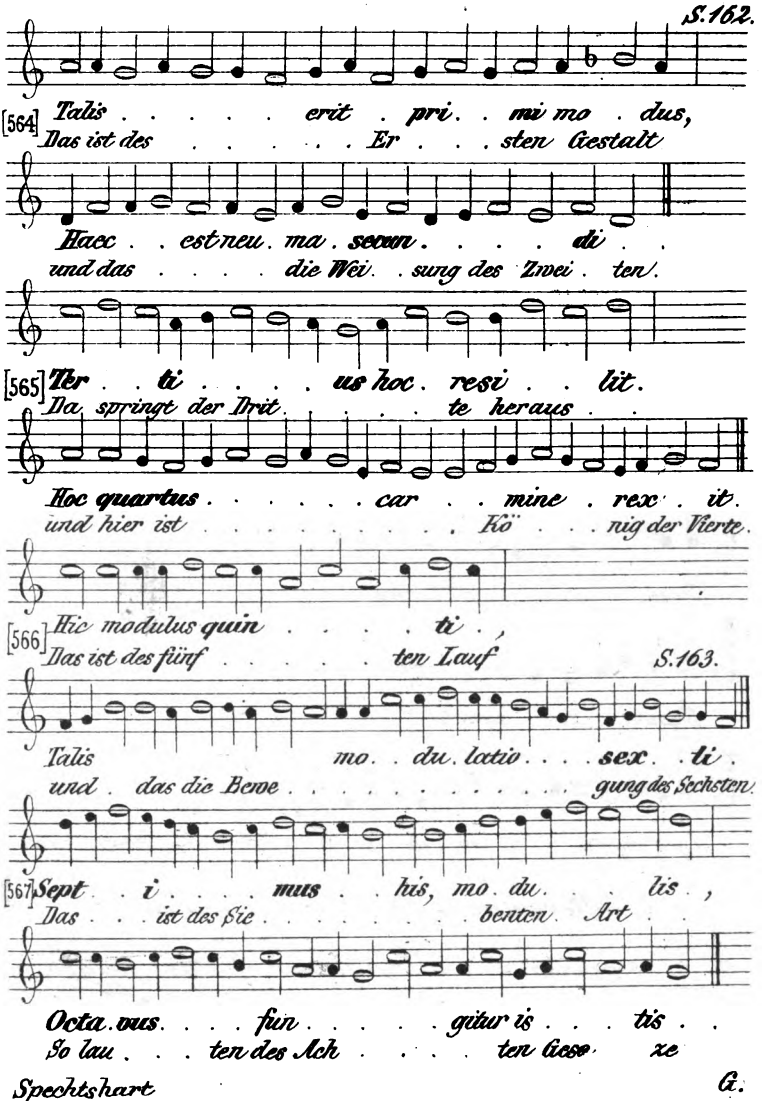 S.162.
Talis . . . . . erit . pri . . mi mo . dus,
[564] Das ist des . . . . . . Er . . . sten Gestalt
Haec . . est neu . ma . secun . . . . . di . .
und das . . . . die Wei . . sung des Zwei . ten.
[565] Ter . . ti . . . . us hoc . resi . . . lit.
Da springt der Drit . . . . . te heraus . . .
Hoc quartus . . . . . . car . . . mine . rex . it.
und hier ist . . . . . . . . . Kö . . . nig der Vierte.
[566] Hic modulus quin . . . . . ti . ,
Das ist des fünf . . . . . ten Lauf
S.163.
Talis mo . . du . latio . . . . sex . . ti .
und . das die Bewe . . . . . . . . . gung des Sechsten
[567] Sept . . i . . . . mus . . his, mo . du . . . lis . ,
Das . . . ist des Sie . . . . . . benten . Art . .
Octa . vus . . . . fun . . . . . gitur is . . . tis . .
So lau . . . ten des Ach . . . . . ten Gese . ze
Spechtshart G.